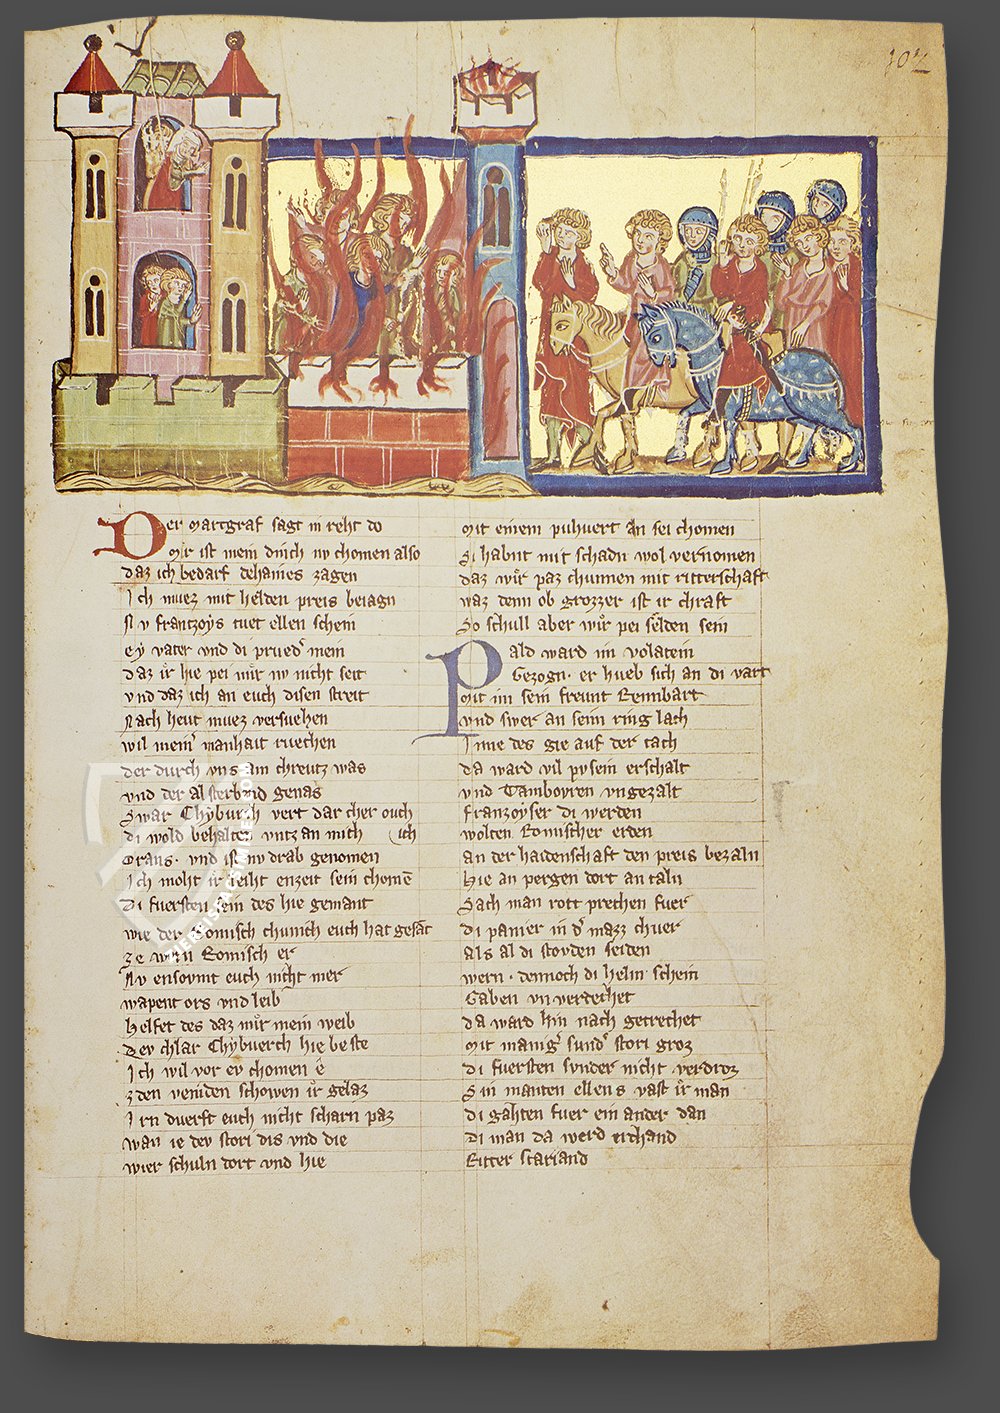 102
Der Martgraf sagt in reht do
Mir ist mein dinch nv chomen also
daz ich bedarf dehaines zagen
Ich muez mit helden preis beiagn
Nv frantzoys tuet ellen schein
ey vater vnd di prueder mein
daz ir hie pei mir nv nicht seit
vnd daz ich an euch disen streit
Nach heut muez versuehen
wil meiner manhait ruechen
der durch vns am chreutz was
vnd der al sterbund genas
Swar Chyburch vert dar cher ouch
di wold behalten vntz an mich (ich
Orans. vnd ist nv drab genomen
Ich moht ir leiht enzeit sein chomen
Di fuersten sein des hie gemant
wie der Romisch chunich euch hat gesant
ze wern Romisch er
Nv ensovmt euch nicht mer
wapent ors vnd leib
Helfet des daz mir mein weib
Dev chlar Chybuerch hie beste
Ich wil vor ev chomen e
zden veinden schowen ir gelaz
Irn duerft euch nicht scharn paz
wan ie dev stori dis vnd die
wier schuln dort vnd hie
Mit einem puhuert an sei chomen
Si habnt mit schadn wol vernomen
daz wir paz chumen mit ritterschaft
waz denn ob grozzer ist ir chraft
So schull aber wir pei selden sein
Pald ward im volatein
Gezogn. er hueb sich an di vart
Mit im sein freunt Rennbart
vnd swer an seim ring lach
Inne des gie auf der tach
da ward vil pusein erschalt
vnd Tambovren vngezalt
Franzoyser di werden
wolten Romischer erden
an der haidenschaft den preis bezaln
Hie an pergen dort an taln
Sach man rott prechen fuer
di panier in der mazz chuer
als al di stovden seiden
wern. dennoch di helm schein
Gaben vnverdechet
da ward hin nach getrechet
Mit maniger sunder stori groz
di fuersten svnder nicht verdroz
Sin manten ellens vast ir man
di gahten fuer ein ander dan
Di man da werd erchand
Ritter scariand